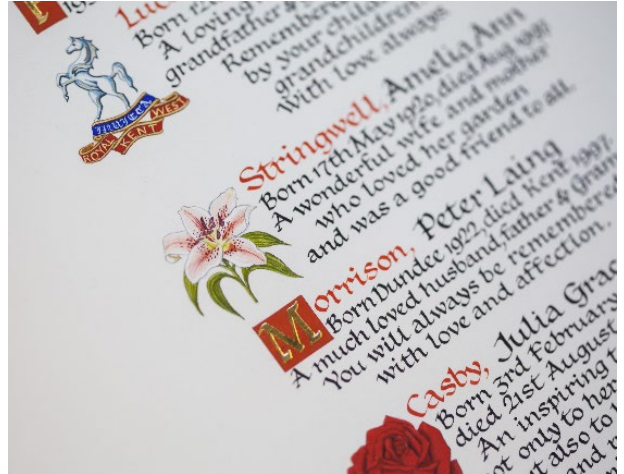 Born
A loving
grandfather &
Remembered
by your child
grandchildren
With love always
INVICTA
ROYAL KENT WEST
Stringwell, Amelia Ann
Born 17th May 1920, died Aug 1997
A wonderful wife and mother
who loved her garden
and was a good friend to all.
Morrison, Peter Laing
Born Dundee 1922, died Kent 1997.
A much loved husband, father & Gram
You will always be remembered
with love and affection.
Casby, Julia Grac
Born 3rd February
died 21st August
An inspiring t
ot only to her
t also to
and